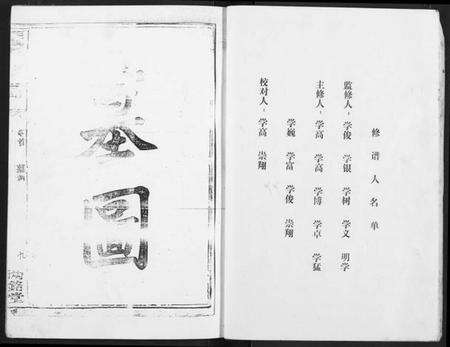 修谱人名单
监修人：学俊 学银 学树 学义 明学
主修人：学高 学高 学博 学卓 学猛
学巍 学富 学俊 崇翔
校对人：学高 崇翔
图
卷首
九